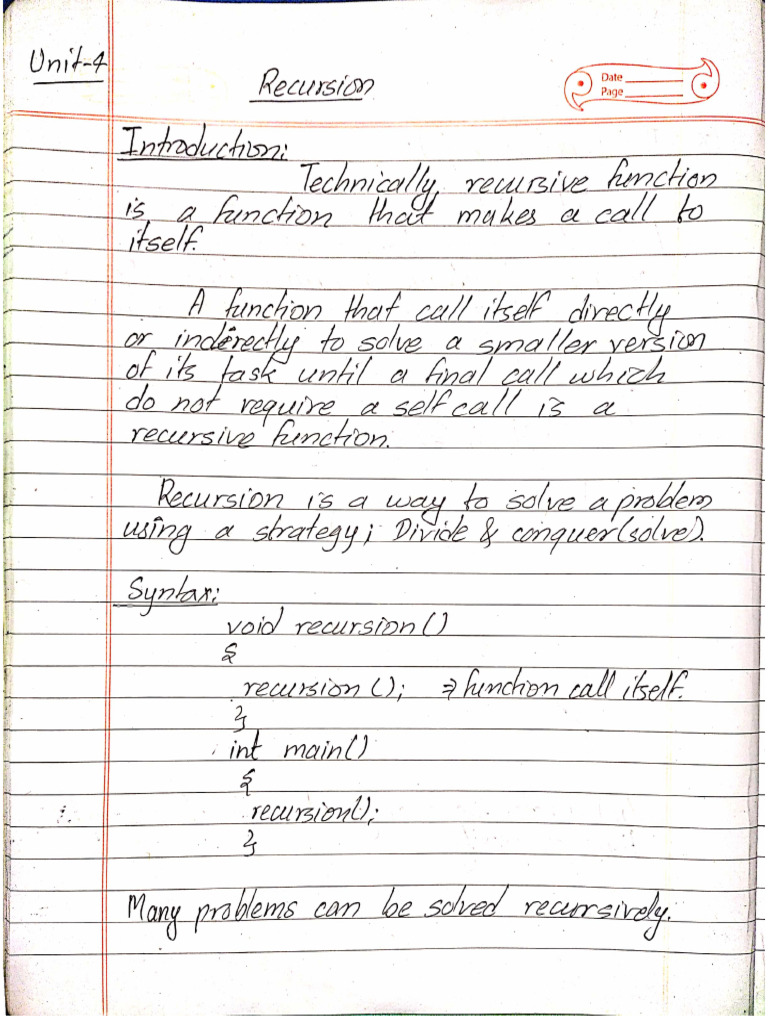 Unit-4
Recursion
Date
Page
Introduction:
Technically, recursive function
is a function that makes a call to
itself.
A function that call itself directly
or indirectly to solve a smaller version
of its task until a final call which
do not require a self call is a
recursive function.
Recursion is a way to solve a problem
using a strategy; Divide & conquer(solve).
Syntax:
void recursion()
{
recursion (); ⇒ function call itself.
}
int main()
{
recursion();
}
Many problems can be solved recurrsively.